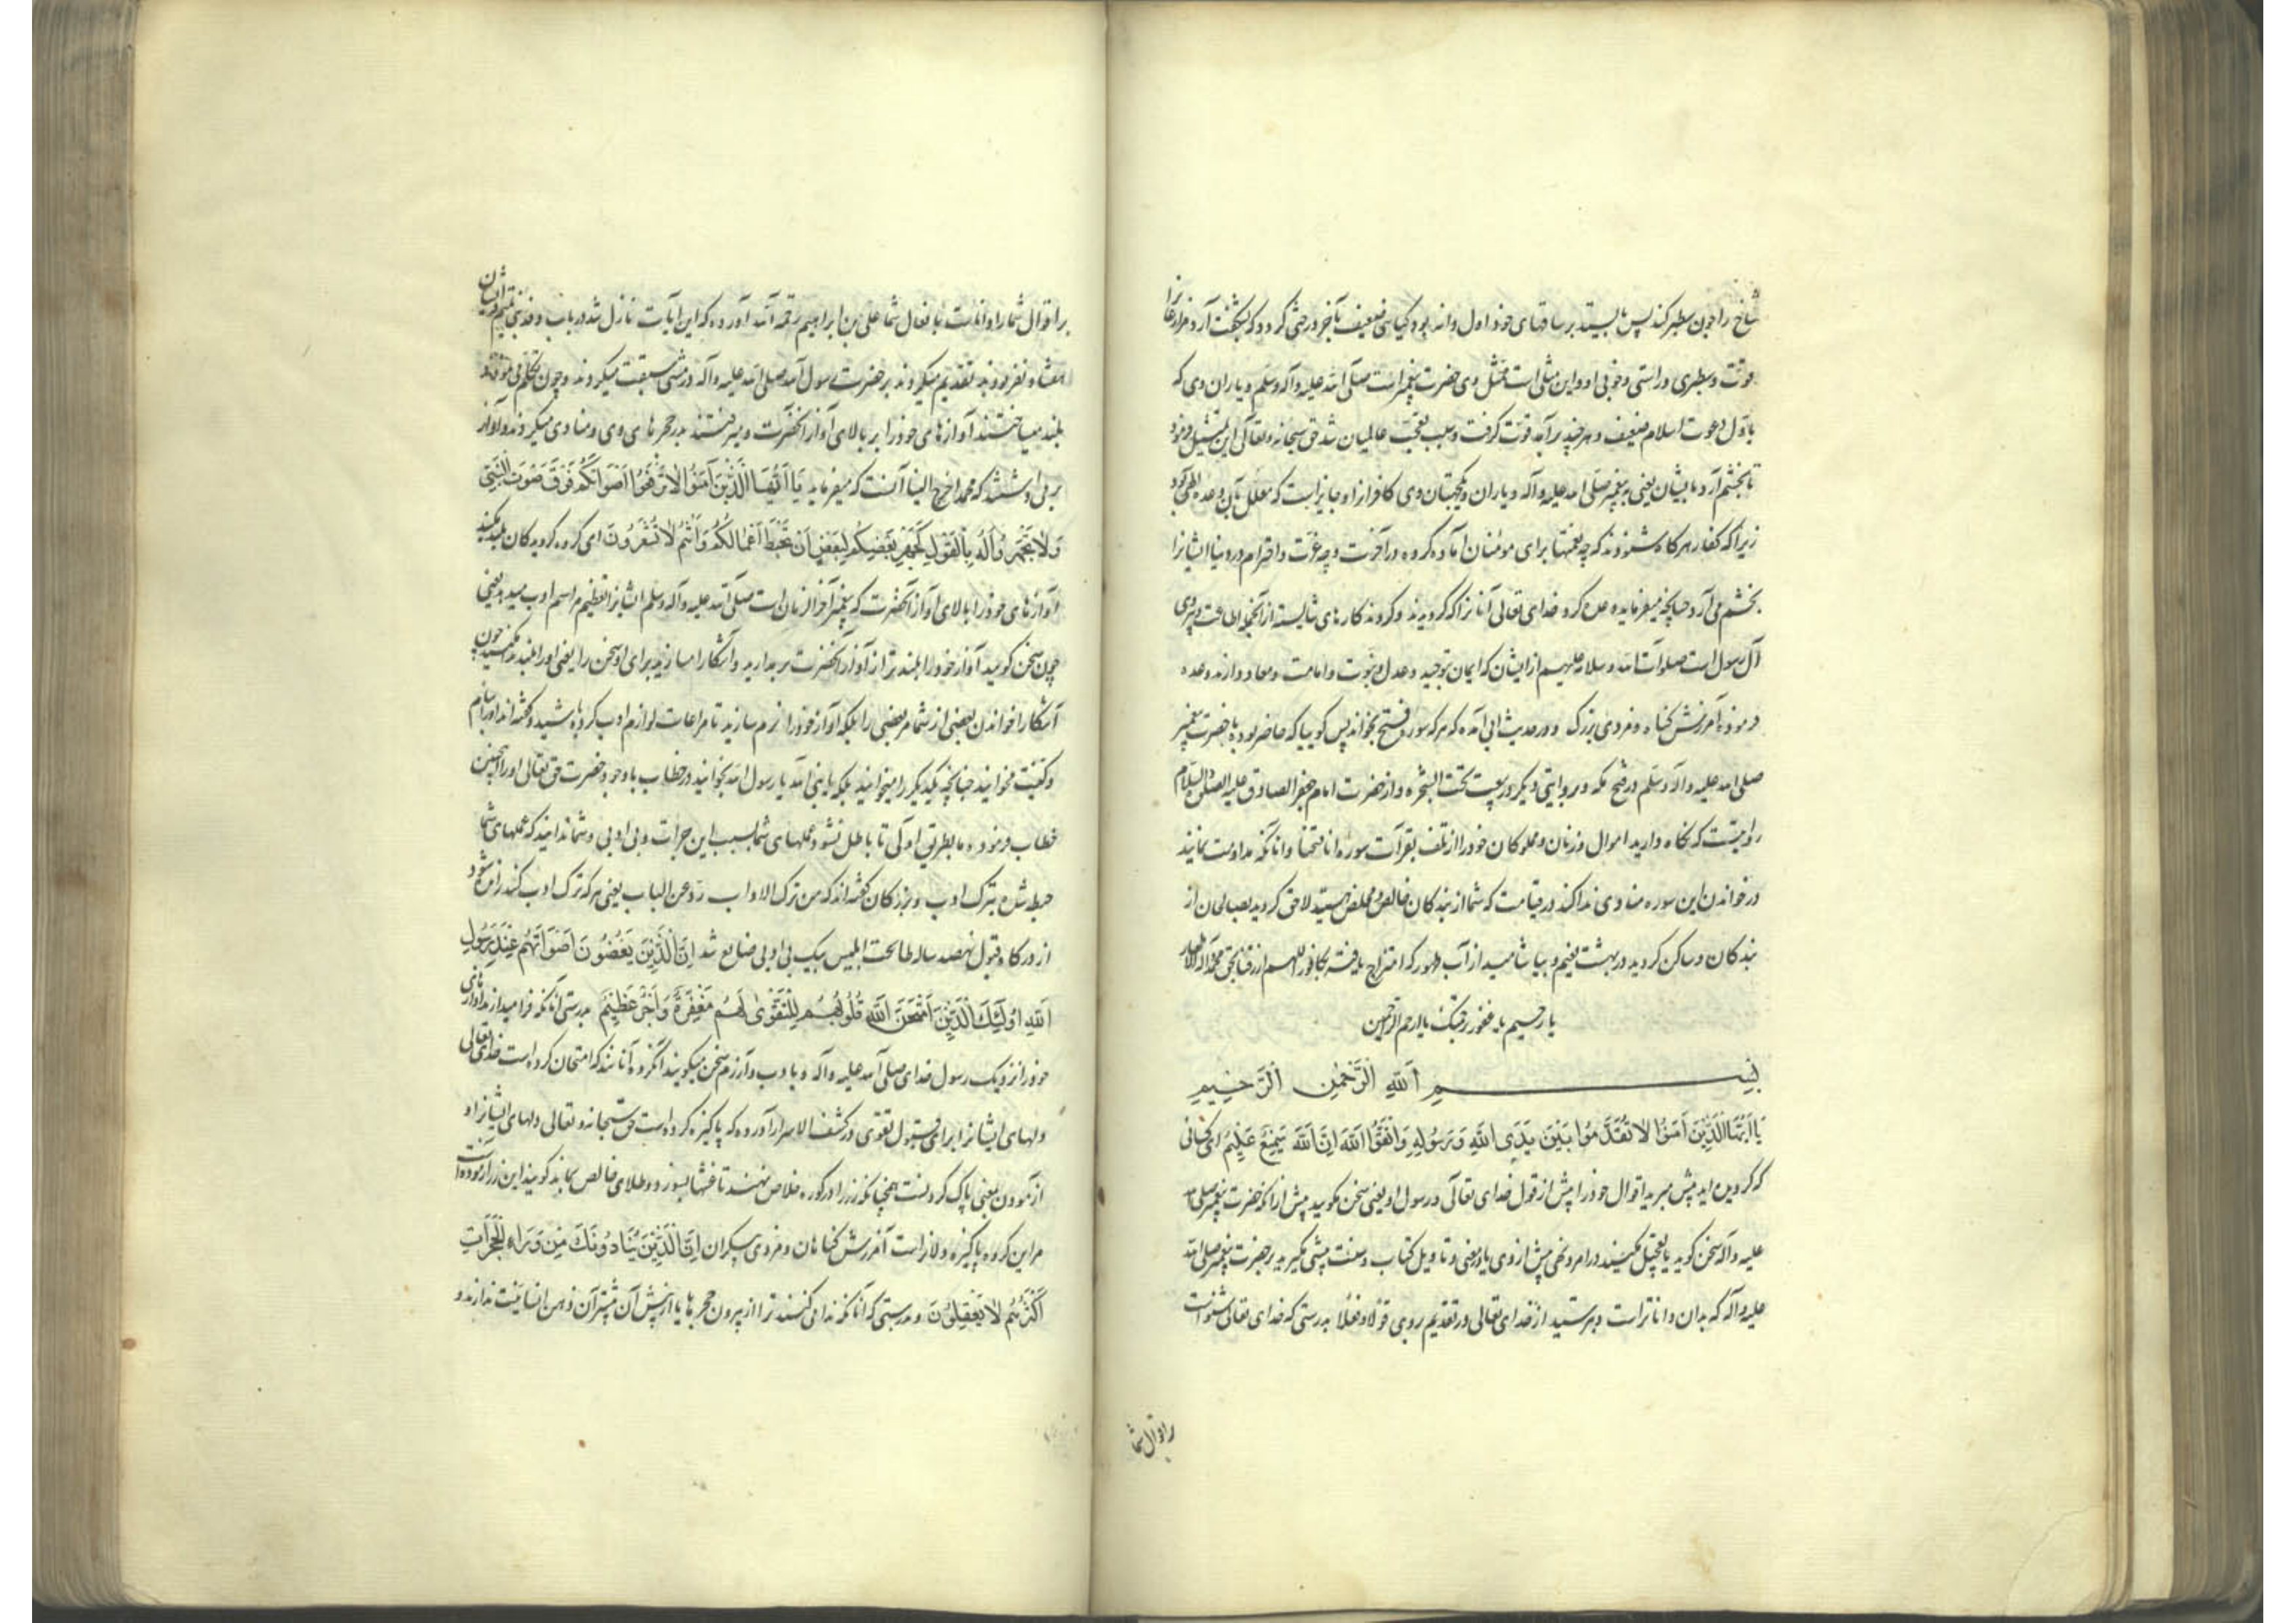 شاخ را چون سطبر کند پس بایستد بر ساقهای خود اول دانه بود و گیاهی ضعیف بآخر درختی گردد که بشگفت آرد مزارعان را
قوت و سطبری و راستی و خوبی او و این مثلی است ممثل وی حضرت پیغمبر است صلی الله علیه وآله وسلم و یاران وی که
باول دعوت اسلام ضعیف و هر چند برآمد قوت گرفت و سبب تعجب عالمیان شد حق سبحانه و تعالی این تمثیل فرمود
تا بخشم آرد بایشان یعنی به پیغمبر صلی الله علیه وآله و یاران و محبتان وی کافرانرا و جایز است که معلل بآن وعده الهی بود
زیرا که کفار هر گاه شنودند که چه نعمتها برای مؤمنان آماده کرده در آخرت و چه عزت و احترام در دنیا ایشانرا
بخشم می آرد چنانچه میفرماید وعده کرد خدای تعالی آنانرا که گرویدند و کردند کارهای شایسته از آنجمله اطاعت و پیروی
آل رسول است صلوات الله وسلامه علیهم از ایشان که ایمان بتوحید و عدل و نبوت و امامت و معاد دارند وعده
فرموده آمرزش گناه و مزدی بزرگ و در حدیث ابی آمده که هر که سوره فتح بخواند پس گوییا که حاضر بوده با حضرت پیغمبر
صلی الله علیه وآله وسلم در فتح مکه و بروایتی دیگر در بیعت تحت الشجره و از حضرت امام جعفر الصادق علیه الصلوة والسلام
روایتست که نگاه دارید اموال و زنان و مملوکان خود را از تلف بقرآءت سوره انا فتحنا و آنانکه مداومت نمایند
در خواندن این سوره منادی ندا کند در قیامت که شما از بندگان خالص و مخلص هستید لاحق گردید بصالحان از
بندگان و ساکن گردید در بهشت نعیم و بیاشامید از آب طهور که امتزاج یافته بکافور اللهم ارزقنا بحق محمد وآله الاطهار
یا رحیم یا غفور برحمتک یا ارحم الراحمین
بسم الله الرحمن الرحیم
یا ایها الذین آمنوا لا تقدموا بین یدی الله ورسوله واتقوا الله ان الله سمیع علیم ای کسانی
که گرویده اید پیش مبرید اقوال خود را پیش از قول خدای تعالی و رسول او یعنی سخن مگویید پیش از آنکه حضرت پیغمبر صلی الله
علیه وآله سخن گوید یا تعجیل مکنید در امر و نهی پیش از وی یا در معنی و تاویل کتاب و سنت پیشی مگیرید بر حضرت پیغمبر صلی الله
علیه وآله که بدان داناتر است و بترسید از خدای تعالی در تقدیم بر وی قولا و فعلا بدرستی که خدای تعالی شنواست
بر اقوال شما
بر اقوال شما و داناست بافعال شما علی بن ابراهیم رحمة الله آورده که این آیات نازل شد در باب وفد بنی تمیم و ایشان
هفتاد نفر بودند تقدیم میکردند بر حضرت رسول الله صلی الله علیه وآله در مشی سبقت میکردند و چون تکلم می نمودند
بلند میساختند آوازهای خود را بر بالای آواز آنحضرت و میرفتند بدر حجرهای وی و منادی میکردند و آواز
بر می داشتند که محمد اخرج الینا آنست که میفرماید یا ایها الذین آمنوا لا ترفعوا اصواتکم فوق صوت النبی
ولا تجهروا له بالقول کجهر بعضکم لبعض ان تحبط اعمالکم وانتم لا تشعرون ای گروه گرویدگان بلند مکنید
آوازهای خود را بالای آواز آنحضرت که پیغمبر آخر الزمان است صلی الله علیه وآله وسلم ایشانرا تعظیم مراسم ادب میدهد یعنی
چون سخن گویید آواز خود را بلندتر از آواز آنحضرت بر مدارید و آشکارا مسازید برای او سخن را یعنی او را بلند مکنید چون
آشکارا خواندن بعضی از شما مر بعضی را بلکه آواز خود را نرم سازید تا مراعات لوازم ادب کرده باشید و گفته اند او را بنام
و کنیت مخوانید چنانچه یکدیگر را میخوانید بلکه یا نبی الله یا رسول الله بخوانید در خطاب با وجود حضرت حق تعالی او را چنین
خطاب فرموده ما بطریق اولی تا باطل نشود عملهای شما بسبب این جرات و بی ادبی و شما ندانید که عملهای شما
حبط شده بترک ادب و بزرگان گفته اند که من ترک الاداب رد عن الباب یعنی هر که ترک ادب کند رانده شود
از درگاه قبول نهصد ساله طاعت ابلیس بیک بی ادبی ضایع شد ان الذین یغضون اصواتهم عند رسول
الله اولئک الذین امتحن الله قلوبهم للتقوی لهم مغفرة واجر عظیم بدرستی آنانکه فرا میدارند آوازهای
خود را نزدیک رسول خدای صلی الله علیه وآله و با ادب و آزرم سخن میگویند آنگروه آنانند که امتحان کرده است خدای تعالی
دلهای ایشانرا برای قبول تقوی در کشف الاسرار آورده که پاکیزه کرده است حق سبحانه و تعالی دلهای ایشانرا و
آزمودن یعنی پاک کردنست همچنانکه زر را در کوره خلاص نهند تا غشها بسوزد و طلای خالص بماند گویند این زر آزموده است
مر این گروه پاکیزه دلانراست آمرزش گناهان و مزدی بیکران ان الذین ینادونک من وراء الحجرات
اکثرهم لا یعقلون و بدرستی که آنانکه ندا می کنند ترا از بیرون حجرها یا از پیش آن بیشتر آن ذهن انسانیت ندارند و